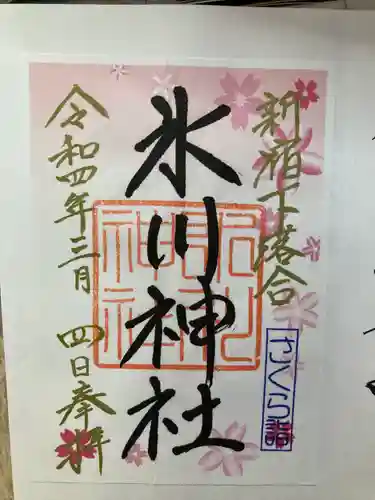 新宿下落合
さくら詣
氷川神社
令和四年三月四日奉拝